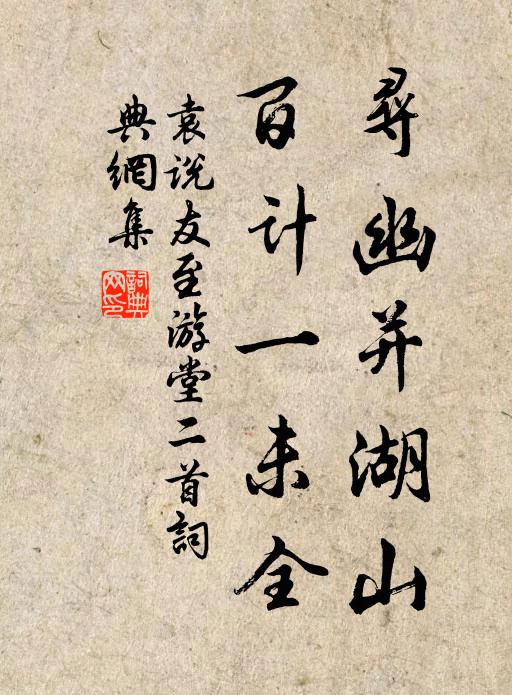 尋幽并湖山
百计一未全
袁说友至游堂二首詞
典網集
詞典
网印